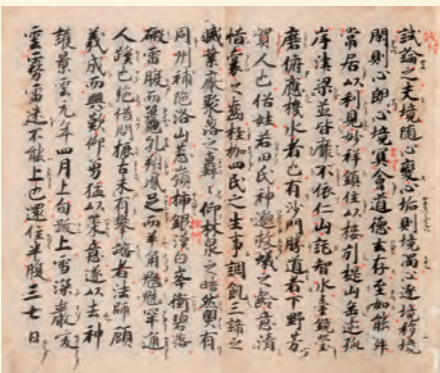 試論之夫境随心變心垢則境濁心逐境移境
閑則心朗心境冥會道德玄存至如能寂
常居以利見妙祥鎮住以接引提山垂迹孤
岸津梁並皆靡不依仁山託智水臺鏡瑩
磨俯應機水者也有沙門勝道者下野芳
賀人也俗姓若田氏神邈救蟻之齡意清
惜囊之齒桎枷四民之生事調飢三諦之
滅業厭聚落之轟々仰林泉之皓然粤有
同州補陁洛山葱嶺插銀漢白峯衝碧落
磤雷腹而鼉吼翔鳳足而羊角魑魅罕通
人蹊也絶借問振古未有攀躋者法師顧
義成而興歎仰勇猛以策意遂以去神
護景雲元年四月上旬跋上雪深巖峻
雲霧雷迷不能上也還住半腹三七日